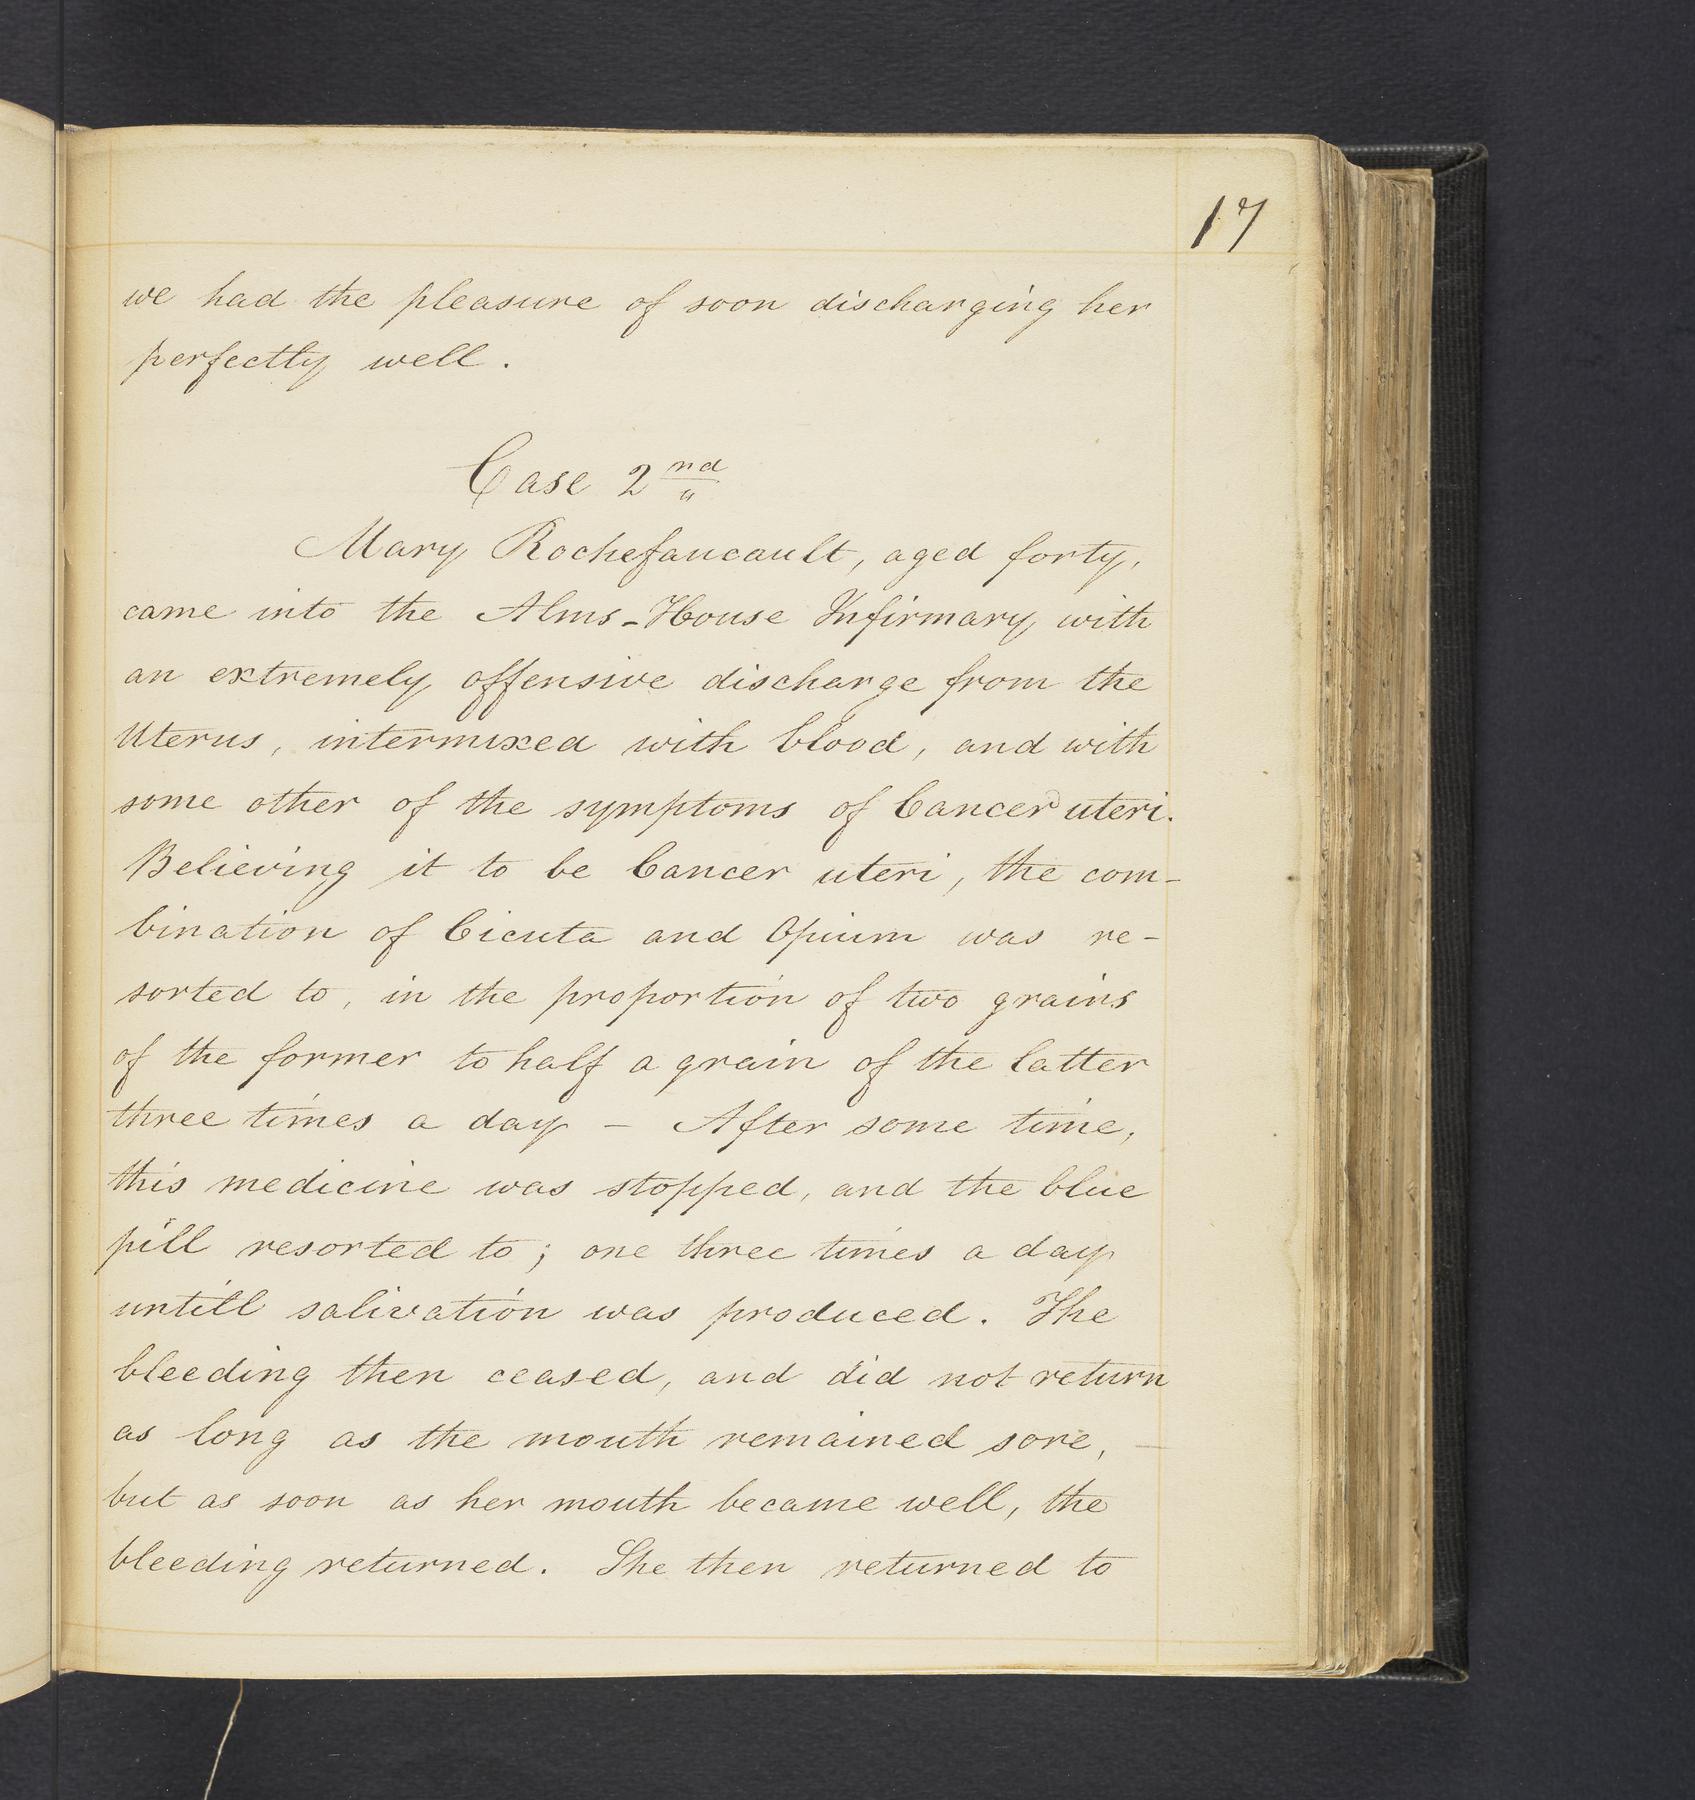 17
we had the pleasure of soon discharging her
perfectly well.
Case 2nd
Mary Rochefaucault, aged forty,
came into the Alms-House Infirmary with
an extremely offensive discharge from the
Uterus, intermixed with blood, and with
some other of the symptoms of Cancer uteri.
Believing it to be Cancer uteri, the com-
bination of Cicuta and Opium was re-
sorted to, in the proportion of two grains
of the former to half a grain of the latter
three times a day — After some time,
this medicine was stopped, and the blue
pill resorted to; one three times a day
untill salivation was produced. The
bleeding then ceased, and did not return
as long as the mouth remained sore, —
but as soon as her mouth became well, the
bleeding returned. She then returned to